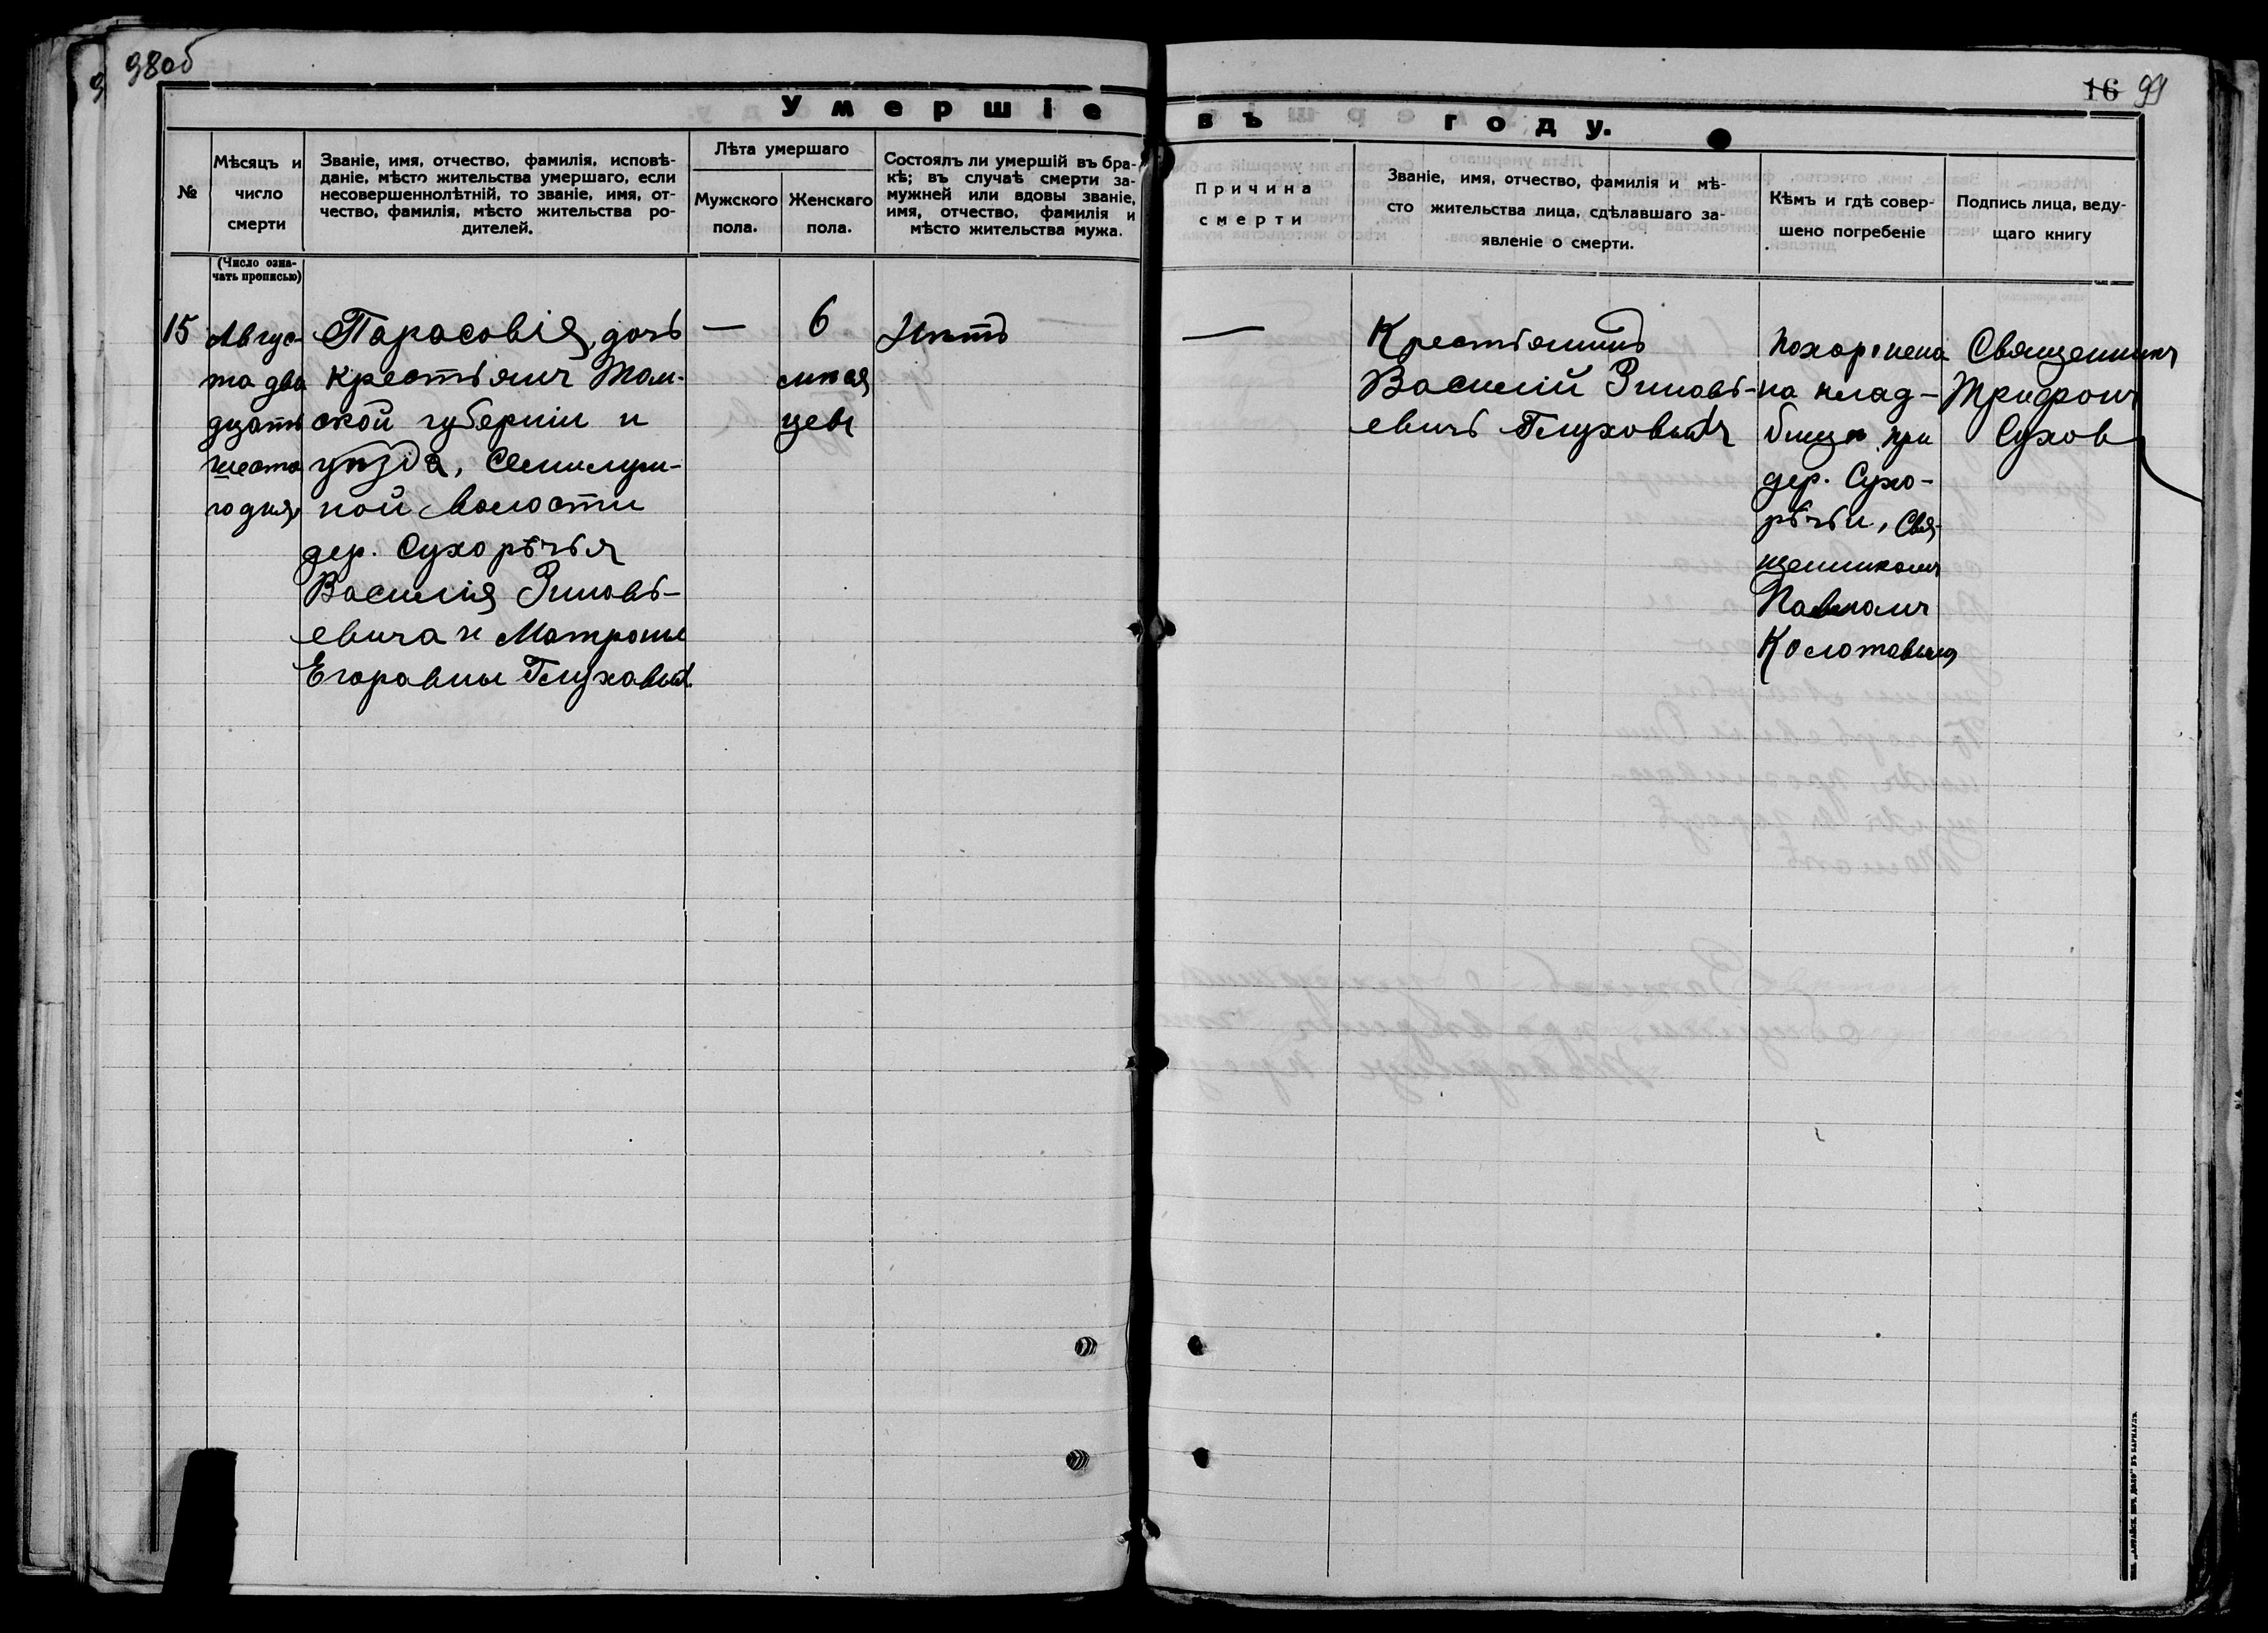 98об
16 99
Умершіе въ году.
№
Мѣсяцъ и
число
смерти
(Число озна-
чать прописью)
Званіе, имя, отчество, фамилія, исповѣ-
даніе, мѣсто жительства умершаго, если
несовершеннолѣтній, то званіе, имя, от-
чество, фамилія, мѣсто жительства ро-
дителей.
Лѣта умершаго
Мужского
пола.
Женскаго
пола.
Состоялъ ли умершій въ бра-
кѣ; въ случаѣ смерти за-
мужней или вдовы званіе,
имя, отчество, фамилія и
мѣсто жительства мужа.
Причина
смерти
Званіе, имя, отчество, фамилія и мѣ-
сто жительства лица, сдѣлавшаго за-
явленіе о смерти.
Кѣмъ и гдѣ совер-
шено погребеніе
Подпись лица, веду-
щаго книгу
15
Авгус-
та два
дцать
шесто
го дня,
Парасовія, дочь
крестьянъ Том-
ской губерніи и
уѣзда, Семилуж-
ной волости
дер. Сухорѣчья
Василія Зиновь-
евича и Матроны
Егоравны Глуховых
—
6
мѣся
цевъ
Нѣтъ
—
Крестьянинъ
Василій Зиновь-
евичъ Глуховыхъ
Похоронена
на клад-
бищѣ при
дер. Сухо-
рѣчьи, Свя-
щенникомъ
Павломъ
Священникъ
Трифонъ
Сухов
Тип. „Алтайск. Печ. Дѣло" въ Барнаулѣ.